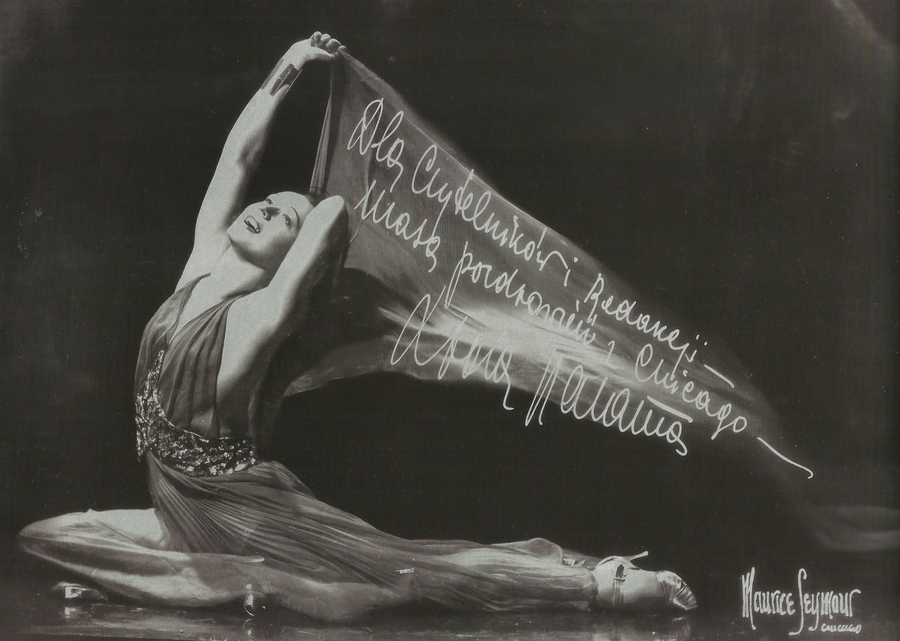 Dla Czytelników i Redakcji —
Masę pozdrowień z Chicago —
Halama
Maurice Seymour
Chicago